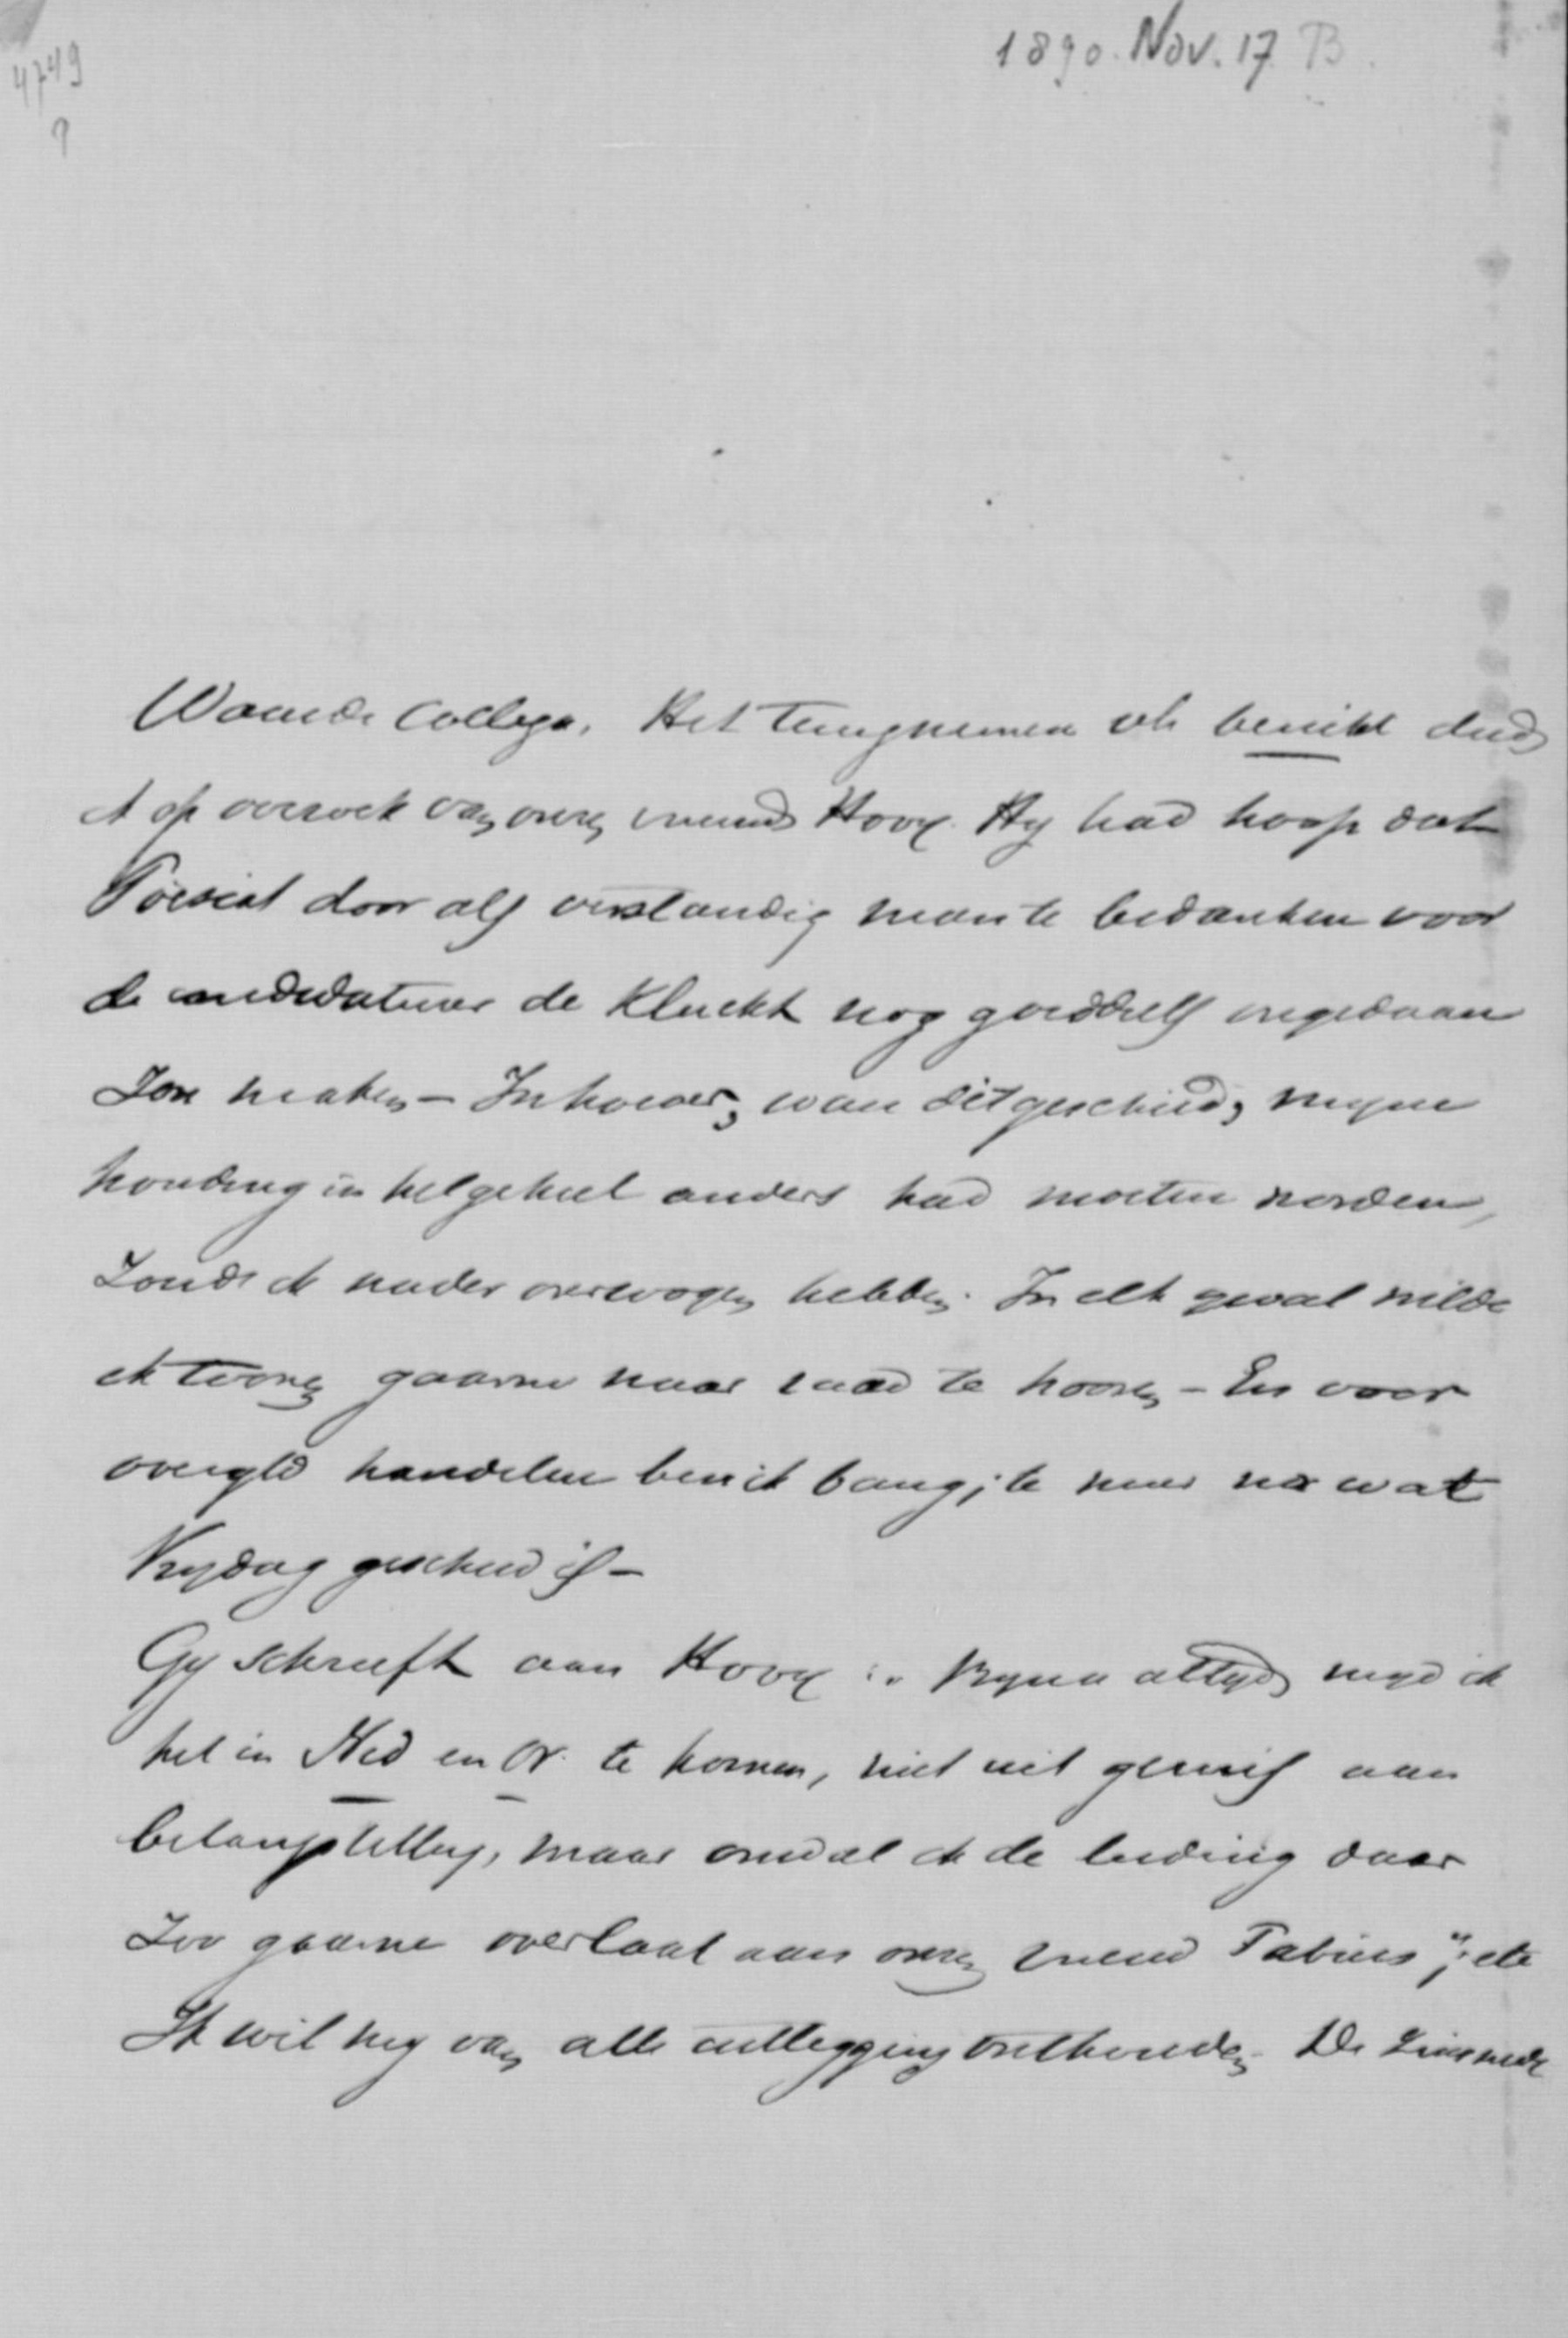 1890. Nov. 17 B.
4749
?
Waarde Collega, Het terugnemen v/h bericht deed
ik op verzoek van onzen vriend Hovy. Hy had hoop dat
Poesiat door als verstandig man te bedanken voor
de candidatuur de Klucht nog goeddeels ongedaan
zou maken – Inhoever, ware dit geschied, myne
houding in het geheel anders had moeten worden,
Zoude ik nader overwogen hebben. In elk geval wilde
ik toonen gaarne naar raad te hooren – En voor
overyld handelen ben ik bang; te meer na wat
Vrydag geschied is –
Gy schreeft aan Hovy: „Byna altyd myd ik
het in Ned en Or. te komen, niet uit gemis aan
belangstelling, maar omdat ik de leiding daar
zoo gaarne overlaat aan onzen vriend Fabius"; etc
Ik wil my van alle uitlegging onthouden. De